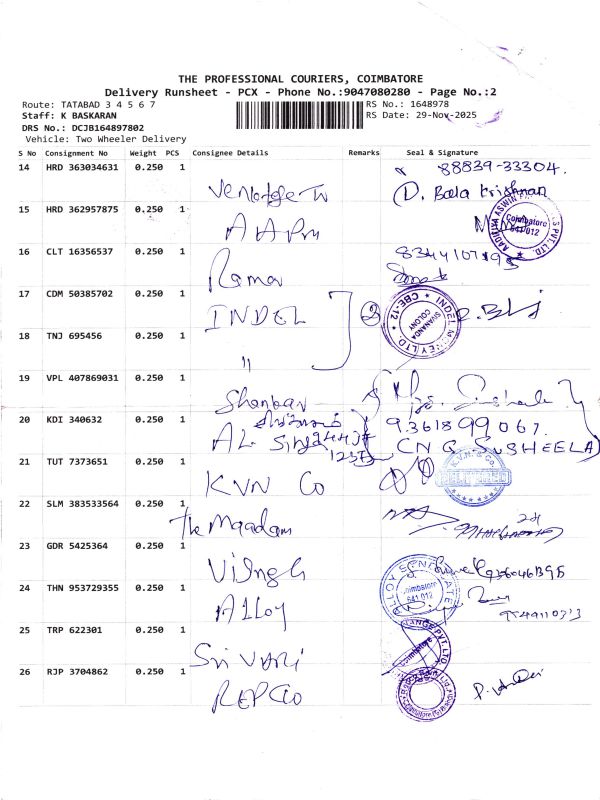 THE PROFESSIONAL COURIERS, COIMBATORE
Delivery Runsheet - PCX - Phone No.:9047080280 - Page No.:2
Route: TATABAD 3 4 5 6 7
RS No.: 1648978
Staff: K BASKARAN
RS Date: 29-Nov-2025
DRS No.: DCJB164897802
Vehicle: Two Wheeler Delivery
S No Consignment No Weight PCS Consignee Details Remarks Seal & Signature
14 HRD 363034631 0.250 1 88839-33304.
D. Bala Krishnan
15 HRD 362957875 0.250 1
Coimbatore 641 012
16 CLT 16356537 0.250 1
Raman
17 CDM 50385702 0.250 1
INDEL 2
SIVANANDA COLONY CBE-12
18 TNJ 695456 0.250 1
"
19 VPL 407869031 0.250 1
Shankar
20 KDI 340632 0.250 1 9361899067.
AL.
CNG. SUSHEELA
21 TUT 7373651 0.250 1
KVN Co DELIVERED
22 SLM 383533564 0.250 1
The Maadam
23 GDR 5425364 0.250 1
24 THN 953729355 0.250 1
Alloy
ALLOY SYNDICATE Coimbatore 641 012
25 TRP 622301 0.250 1
Sri VARI
Coimbatore
26 RJP 3704862 0.250 1
REPCO